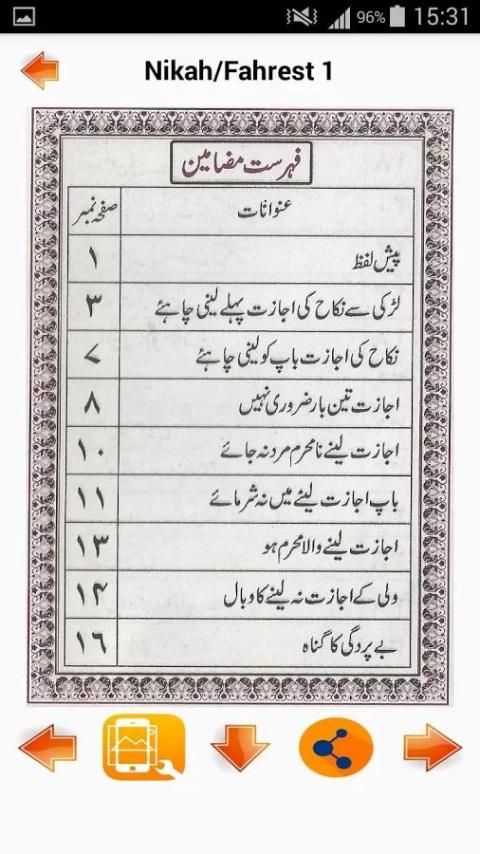 96% 15:31
Nikah/Fahrest 1
فہرست مضامین
عنوانات صفحہ نمبر
پیش لفظ ۱
لڑکی سے نکاح کی اجازت پہلے لینی چاہئے ۳
نکاح کی اجازت باپ کو لینی چاہئے ۷
اجازت تین بار ضروری نہیں ۸
اجازت لینے نامحرم مرد نہ جائے ۱۰
باپ اجازت لینے میں نہ شرمائے ۱۱
اجازت لینے والا محرم ہو ۱۳
ولی کے اجازت نہ لینے کا وبال ۱۴
بے پردگی کا گناہ ۱۶